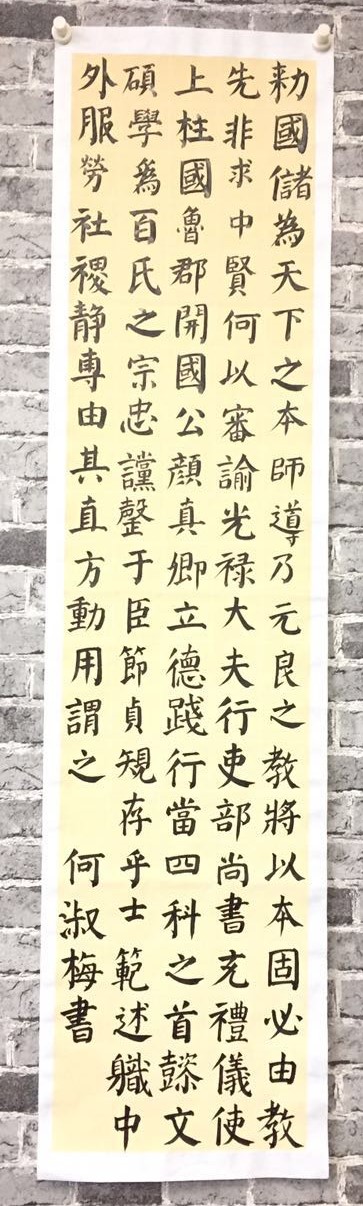 勑國儲為天下之本師導乃元良之教將以本固必由教
先非求中賢何以審諭光禄大夫行吏部尚書充禮儀使
上柱國魯郡開國公顔真卿立德踐行當四科之首懿文
碩學爲百氏之宗忠讜罄于臣節貞規存乎士範述軄中
外服勞社禝静專由其直方動用謂之 何淑梅書